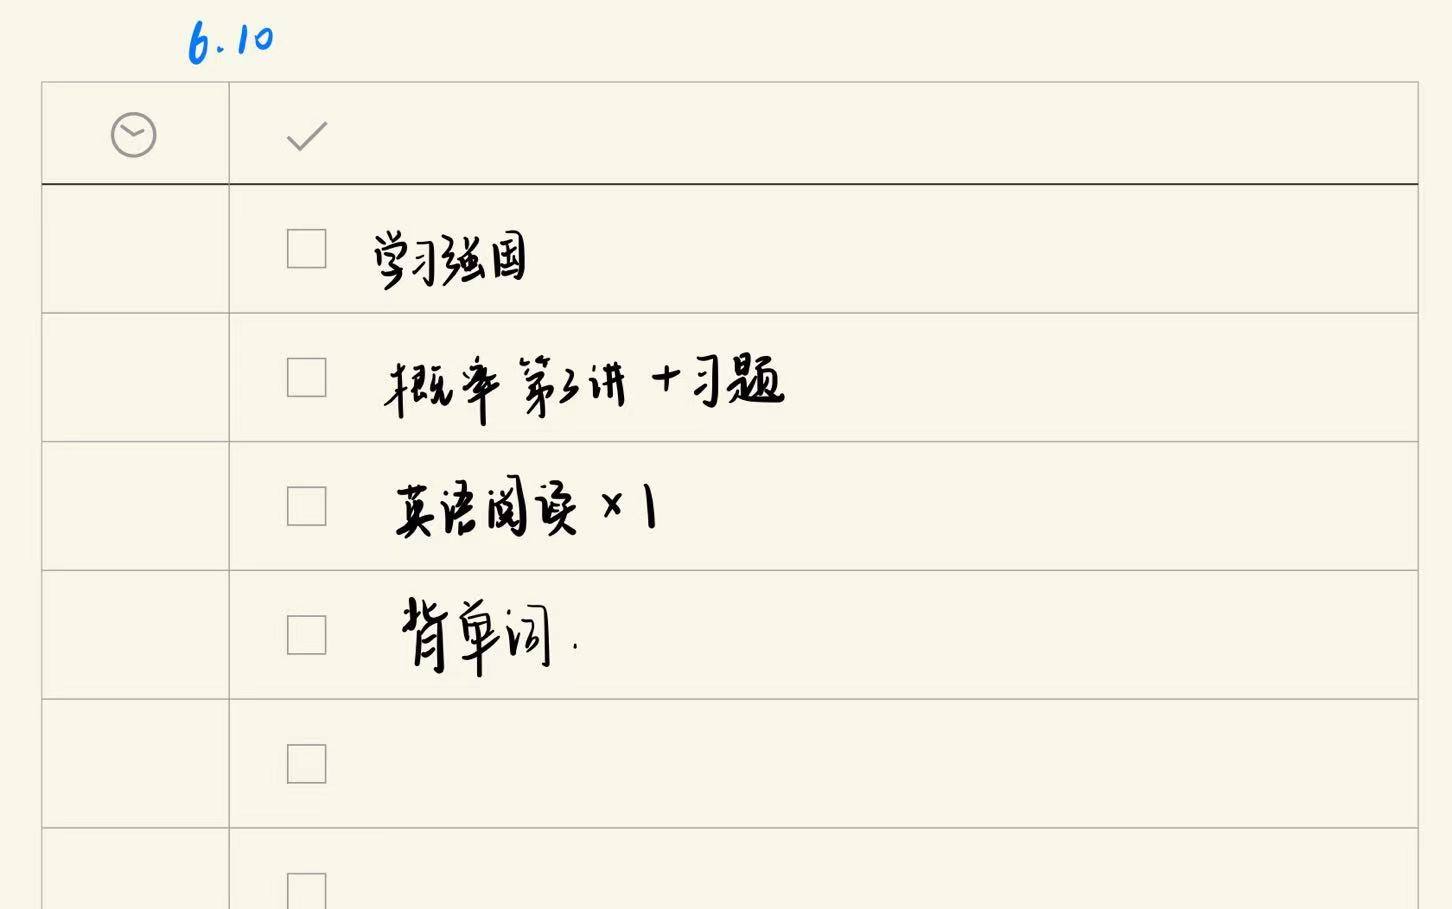 6.10
学习强国
概率第3讲+习题
英语阅读×1
背单词.